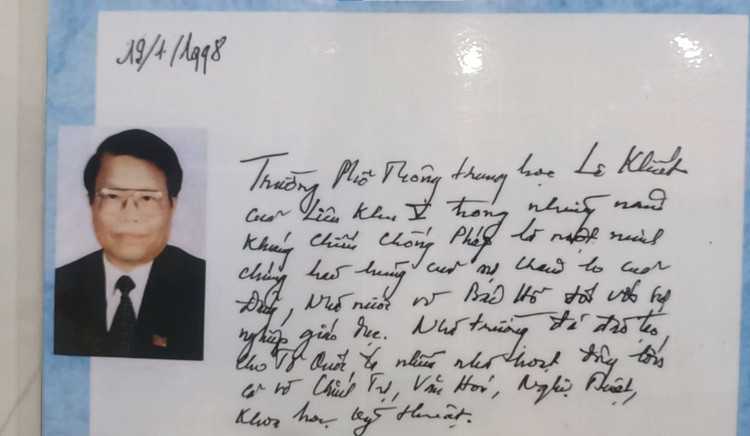 19/1/1998
Trường Phổ Thông trung học Lê Khiết
của Liên Khu V trong những năm
kháng chiến chống Pháp là một minh
chứng hào hùng của sự chăm lo của
Đảng, Nhà nước và Bác Hồ đối với sự
nghiệp giáo dục. Nhà trường đã đào tạo
cho Tổ Quốc ta nhiều nhà hoạt động lớn
cả về Chính Trị, Văn Hoá, Nghệ Thuật,
Khoa học kỹ thuật.